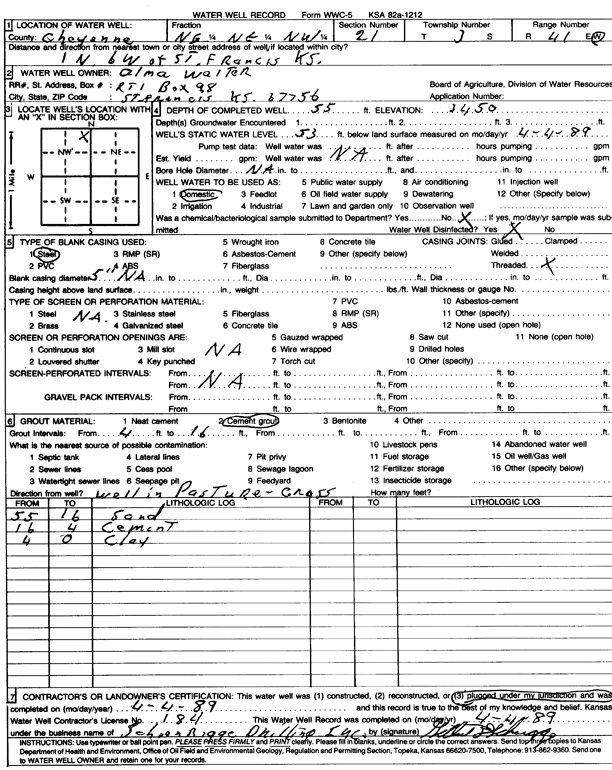 WATER WELL RECORD Form WWC-5 KSA 82a-1212
1 LOCATION OF WATER WELL: Fraction Section Number Township Number Range Number
County: Cheyenne NE ¼ NE ¼ NW ¼ 21 T 3 S R 41 E/W
Distance and direction from nearest town or city street address of well if located within city?
1 N. 6 W of ST. Francis KS.
2 WATER WELL OWNER: Alma Walter
RR#, St. Address, Box # : RT1 Box 98 Board of Agriculture, Division of Water Resources
City, State, ZIP Code : ST Francis KS. 67756 Application Number:
3 LOCATE WELL'S LOCATION WITH AN "X" IN SECTION BOX:
N
X
NW NE
W E
SW SE
S
1 Mile
4 DEPTH OF COMPLETED WELL 55 ft. ELEVATION: 3450
Depth(s) Groundwater Encountered 1. ft. 2. ft. 3. ft.
WELL'S STATIC WATER LEVEL 53 ft. below land surface measured on mo/day/yr 4-4-89
Pump test data: Well water was NA ft. after hours pumping gpm
Est. Yield gpm: Well water was ft. after hours pumping gpm
Bore Hole Diameter NA in. to ft., and in. to ft.
WELL WATER TO BE USED AS: 5 Public water supply 8 Air conditioning 11 Injection well
1 Domestic 3 Feedlot 6 Oil field water supply 9 Dewatering 12 Other (Specify below)
2 Irrigation 4 Industrial 7 Lawn and garden only 10 Observation well
Was a chemical/bacteriological sample submitted to Department? Yes No X ; If yes, mo/day/yr sample was sub-
mitted Water Well Disinfected? Yes X No
5 TYPE OF BLANK CASING USED: 5 Wrought iron 8 Concrete tile CASING JOINTS: Glued Clamped
1 Steel 3 RMP (SR) 6 Asbestos-Cement 9 Other (specify below) Welded
2 PVC 4 ABS 7 Fiberglass Threaded X
Blank casing diameter 5" NA in. to ft., Dia in. to ft., Dia in. to ft.
Casing height above land surface in., weight lbs./ft. Wall thickness or gauge No.
TYPE OF SCREEN OR PERFORATION MATERIAL: 7 PVC 10 Asbestos-cement
1 Steel NA 3 Stainless steel 5 Fiberglass 8 RMP (SR) 11 Other (specify)
2 Brass 4 Galvanized steel 6 Concrete tile 9 ABS 12 None used (open hole)
SCREEN OR PERFORATION OPENINGS ARE: 5 Gauzed wrapped 8 Saw cut 11 None (open hole)
1 Continuous slot 3 Mill slot NA 6 Wire wrapped 9 Drilled holes
2 Louvered shutter 4 Key punched 7 Torch cut 10 Other (specify)
SCREEN-PERFORATED INTERVALS: From NA ft. to ft., From ft. to ft.
From ft. to ft., From ft. to ft.
GRAVEL PACK INTERVALS: From ft. to ft., From ft. to ft.
From ft. to ft., From ft. to ft.
6 GROUT MATERIAL: 1 Neat cement 2 Cement grout 3 Bentonite 4 Other
Grout Intervals: From 4 ft. to 16 ft., From ft. to ft., From ft. to ft.
What is the nearest source of possible contamination: 10 Livestock pens 14 Abandoned water well
1 Septic tank 4 Lateral lines 7 Pit privy 11 Fuel storage 15 Oil well/Gas well
2 Sewer lines 5 Cess pool 8 Sewage lagoon 12 Fertilizer storage 16 Other (specify below)
3 Watertight sewer lines 6 Seepage pit 9 Feedyard 13 Insecticide storage
Direction from well? well in Pasture-Grass How many feet?
FROM TO LITHOLOGIC LOG FROM TO LITHOLOGIC LOG
55 16 Sand
16 4 Cement
4 0 Clay
7 CONTRACTOR'S OR LANDOWNER'S CERTIFICATION: This water well was (1) constructed, (2) reconstructed, or (3) plugged under my jurisdiction and was
completed on (mo/day/year) 4-4-89 and this record is true to the best of my knowledge and belief. Kansas
Water Well Contractor's License No. 184 This Water Well Record was completed on (mo/day/yr) 4-4-89
under the business name of Drilling Inc. by (signature)
INSTRUCTIONS: Use typewriter or ball point pen. PLEASE PRESS FIRMLY and PRINT clearly. Please fill in blanks, underline or circle the correct answers. Send top three copies to Kansas
Department of Health and Environment, Office of Oil Field and Environmental Geology, Regulation and Permitting Section, Topeka, Kansas 66620-7500, Telephone: 913-862-9360. Send one
to WATER WELL OWNER and retain one for your records.